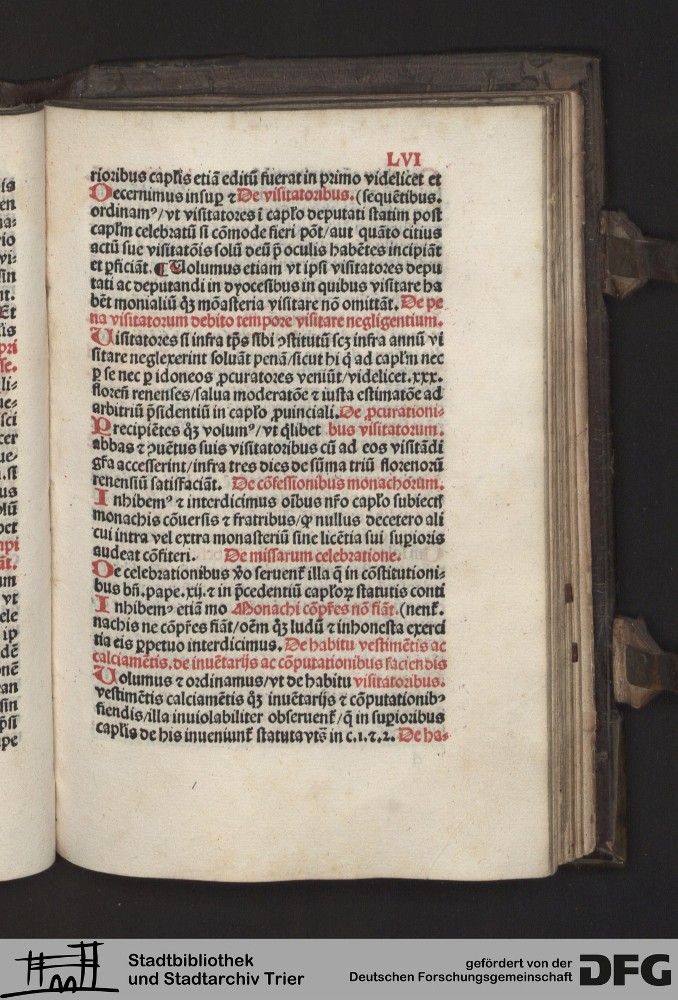 LVI
rioribus capl̄is etiā editū fuerat in primo videlicet et
Decernimus insuꝑ ⁊ De visitatoribus. (sequētibus.
ordinamꝰ/vt visitatores ī capl̄o deputati statim post
capl̄m celebratū si cōmode fieri pōt/aut quāto citius
actū sue visitatōis solū deū p̄ oculis habētes incipiāt
et ꝑficiāt. ¶ Volumus etiam vt ipsi visitatores depu
tati ac deputandi in dyocesibus in quibus visitare ha
bēt monialiū qꝫ mōasteria visitare nō omittāt. De pe
na visitatorum debito tempore visitare negligentium.
Visitatores si infra tp̄s sibi ꝯstitutū scꝫ infra annū vi
sitare neglexerint soluāt penā/sicut hi q̄ ad capl̄m nec
ꝑ se nec ꝑ idoneos ꝓcuratores veniūt/videlicet.xxx.
floreñ renenses/salua moderatōe ⁊ iusta estimatōe ad
arbitriū p̄sidentiū in capl̄o ꝓuinciali. De ꝓcurationi⸗
Precipiētes qꝫ volumꝰ/vt q̄libet bus visitatorum.
abbas ⁊ ꝯuētus suis visitatoribus cū ad eos visitādi
gr̄a accesserint/infra tres dies de sūma triū florenorū
renensiū satisfaciāt. De cōfessionibus monachorum.
Inhibemꝰ ⁊ interdicimus oībus nr̄o capl̄o subiectꝭ
monachis cōuersis ⁊ fratribus/ꝙ nullus decetero ali
cui intra vel extra monasteriū sine licētia sui suꝑioris
audeat cōfiteri. De missarum celebratione.
De celebrationibus v̄o seruent̄ illa q̄ in cōstitutioni⸗
bus bn̄.pape.xij.⁊ in p̄cedentiū capl̄oꝝ statutis conti
Inhibemꝰ etiā mo Monachi cōpr̄es nō fiāt. (nent̄.
nachis ne cōpr̄es fiāt/oēm qꝫ ludū ⁊ inhonesta exerci
tia eis ꝑpetuo interdicimus. De habitu vestimētis ac
calciamētis. de inuētarijs ac cōputationibus faciendis
Volumus ⁊ ordinamus/vt de habitu visitatoribus.
vestimētis calciamētis qꝫ inuētarijs ⁊ cōputationibꝰ
fiendis/illa inuiolabiliter obseruent̄/q̄ in suꝑioribus
capl̄is de his inueniunt̄ statuta vts̄ in c.1.⁊.2. De ha⸗
Stadtbibliothek
und Stadtarchiv Trier
gefördert von der
Deutschen Forschungsgemeinschaft
DFG